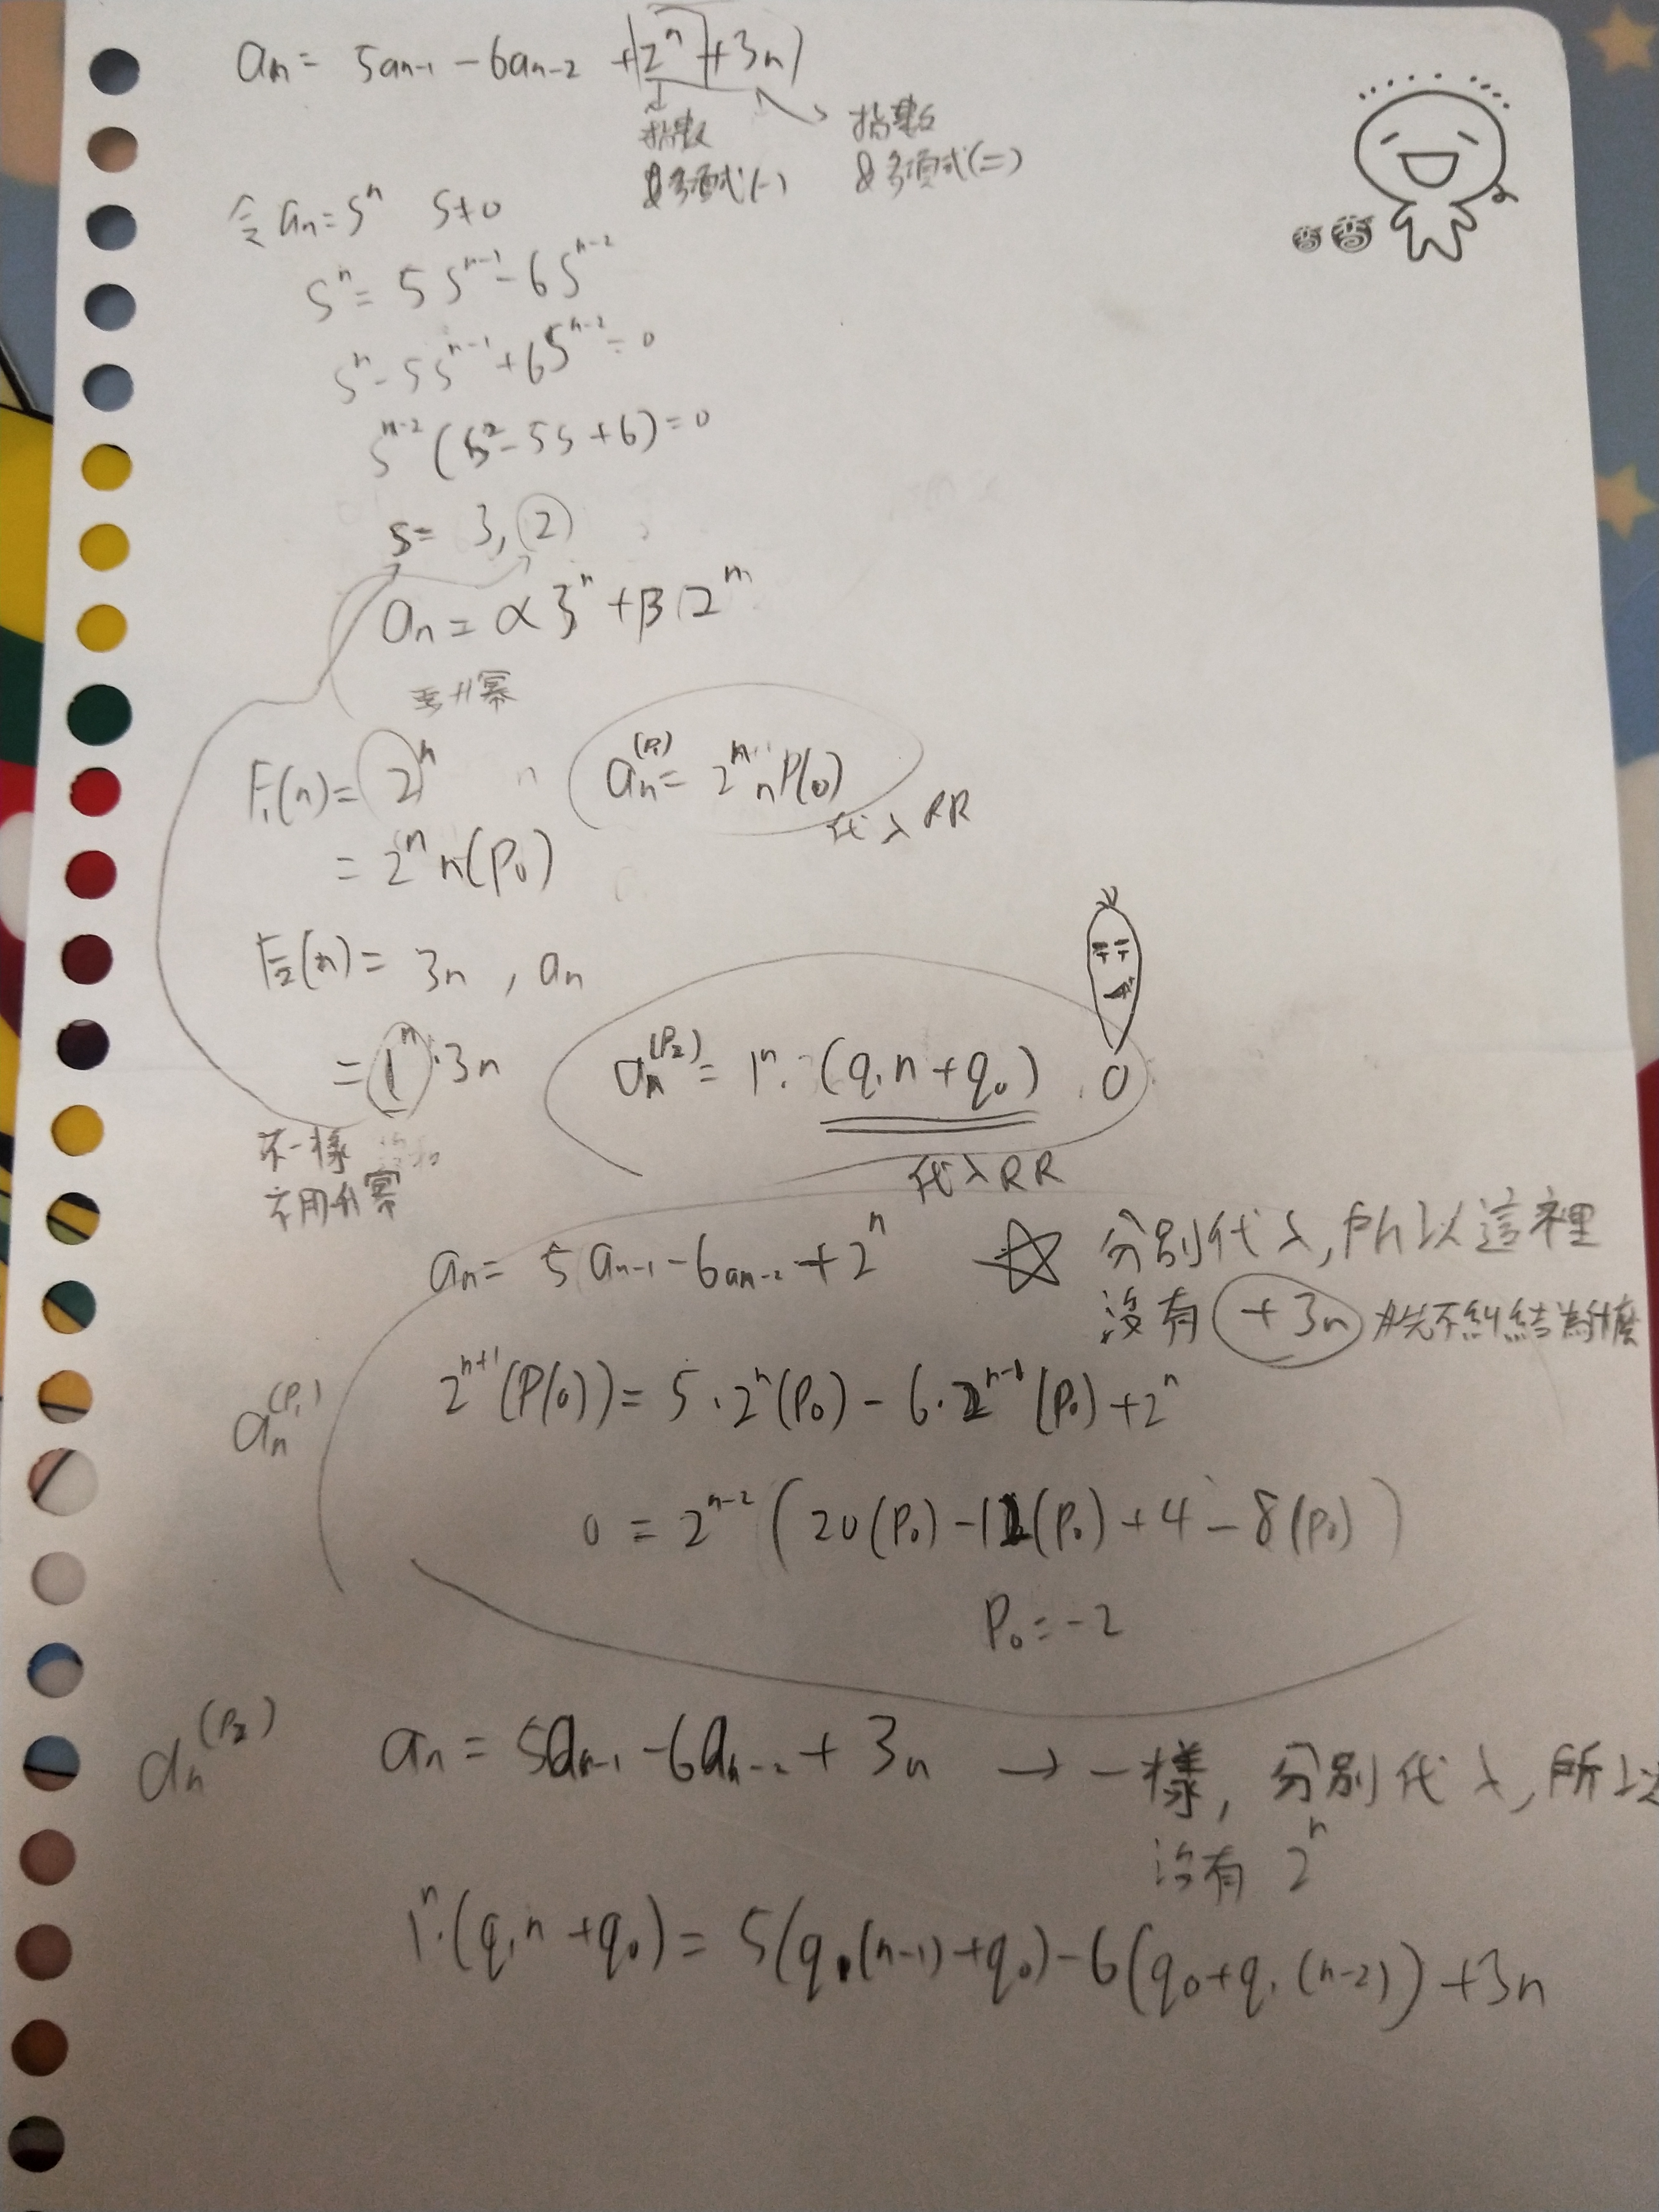 aₙ = 5aₙ₋₁ - 6aₙ₋₂ + (2ⁿ + 3n)
指數 指數
&多項式(一) &多項式(二)
令 aₙ = Sⁿ S≠0
Sⁿ = 5Sⁿ⁻¹ - 6Sⁿ⁻²
Sⁿ - 5Sⁿ⁻¹ + 6Sⁿ⁻² = 0
Sⁿ⁻² (S² - 5S + 6) = 0
S = 3, 2
aₙ = α3ⁿ + β2ⁿ
要升冪
F₁(n) = 2ⁿ aₙ^(P₁) = 2ⁿ n P(0)
代入RR
= 2ⁿ n(P₀)
F₂(n) = 3n , aₙ
= 1ⁿ · 3n aₙ^(P₂) = 1ⁿ · (q₁n + q₀) 0
不一樣
不用升冪
代入RR
aₙ = 5aₙ₋₁ - 6aₙ₋₂ + 2ⁿ ☆ 分別代入,所以這裡
沒有 +3n 先不糾結為什麼
aₙ^(P₁) 2ⁿ⁺¹(P(0)) = 5·2ⁿ(P₀) - 6·2ⁿ⁻¹(P₀) + 2ⁿ
0 = 2ⁿ⁻² (20(P₀) - 12(P₀) + 4 - 8(P₀))
P₀ = -2
aₙ^(P₂) aₙ = 5aₙ₋₁ - 6aₙ₋₂ + 3n → 一樣, 分別代入,所以
沒有 2ⁿ
1ⁿ·(q₁n + q₀) = 5(q₁(n-1) + q₀) - 6(q₀ + q₁(n-2)) + 3n